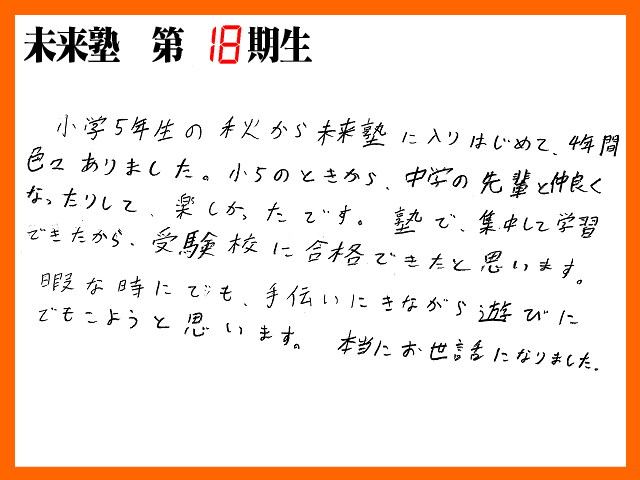 未来塾 第 18期生
小学5年生の秋から未来塾に入りはじめて、4年間
色々ありました。小5のときから、中学の先輩と仲良く
なったりして、楽しかったです。塾で、集中して学習
できたから、受験校に合格できたと思います。
暇な時にでも、手伝いにきながら遊びに
でもこようと思います。 本当にお世話になりました.